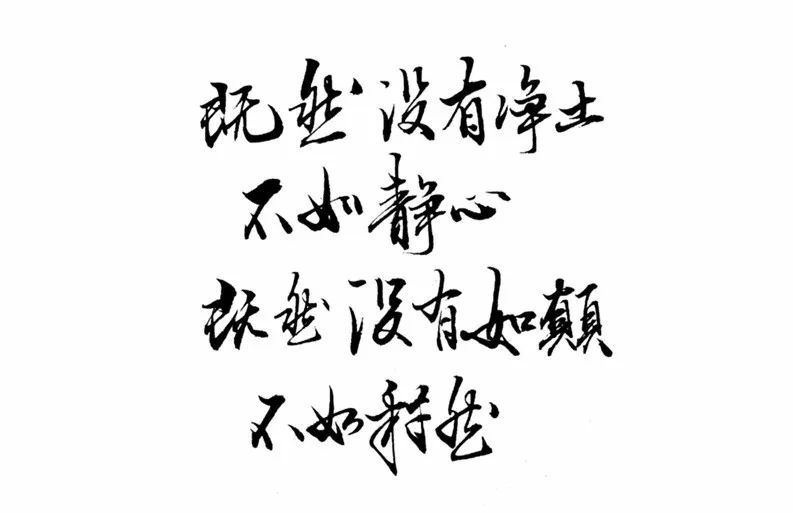 既然没有净土
不如静心
既然没有如愿
不如释然